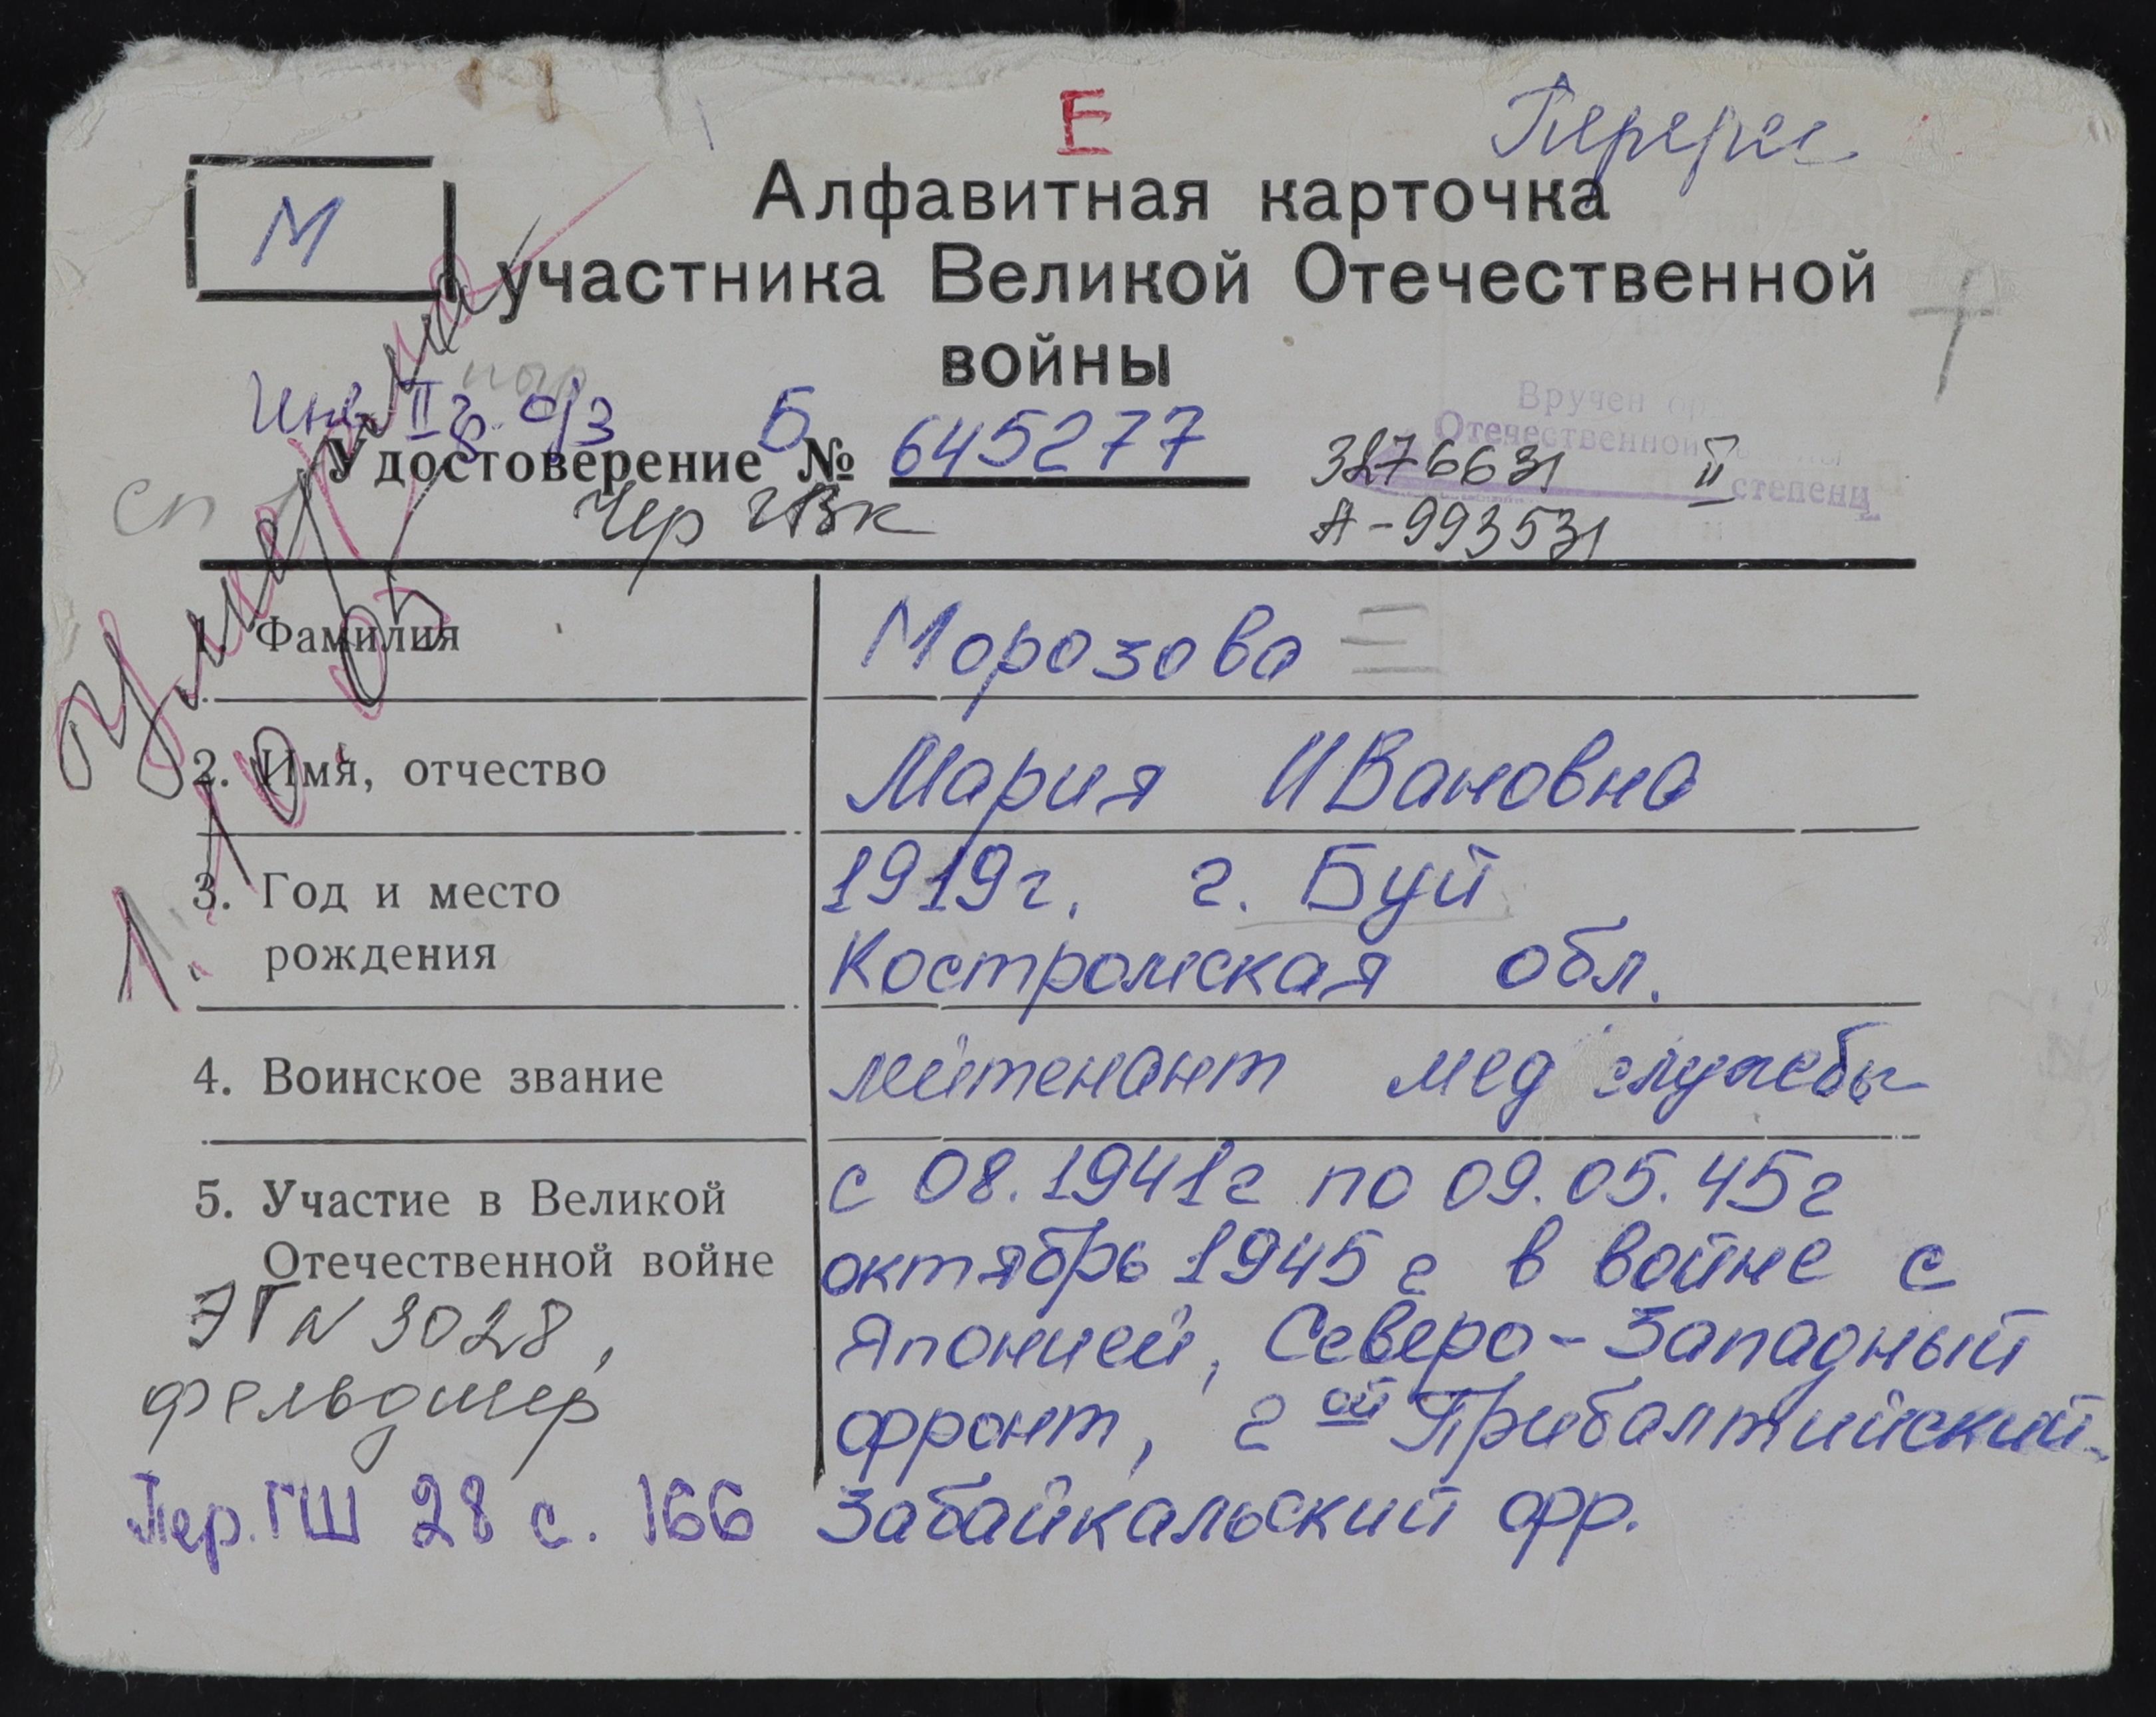 Е
Перерег
М
Алфавитная карточка
участника Великой Отечественной
войны
Инв II гр. о/з
Б
Удостоверение № 645277
Вручен ор
Отечественной войны
II степени
3276631
А-993531
сп
Чер ГВК
умерла
1.10.05
1. Фамилия
Морозова
2. Имя, отчество
Мария Ивановна
3. Год и место
рождения
1919г. г. Буй
Костромская обл.
4. Воинское звание
лейтенант мед службы
5. Участие в Великой
Отечественной войне
с 08.1941г по 09.05.45г
октябрь 1945г в войне с
Японией, Северо-Западный
фронт, 2ой Прибалтийский
Забайкальский фр.
ЭГ N 3028,
фельдшер
Пер. ГШ 28 с. 166